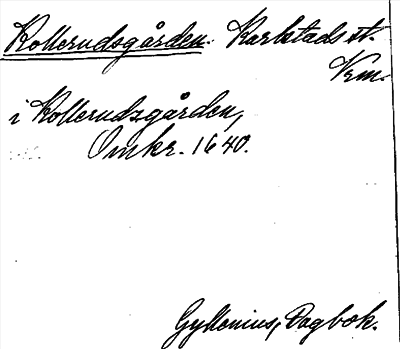 Kollerudsgården. Karlstads st.
Vrm.
i Kollerudzgården,
Omkr. 1640.
Gyllenius, Dagbok.